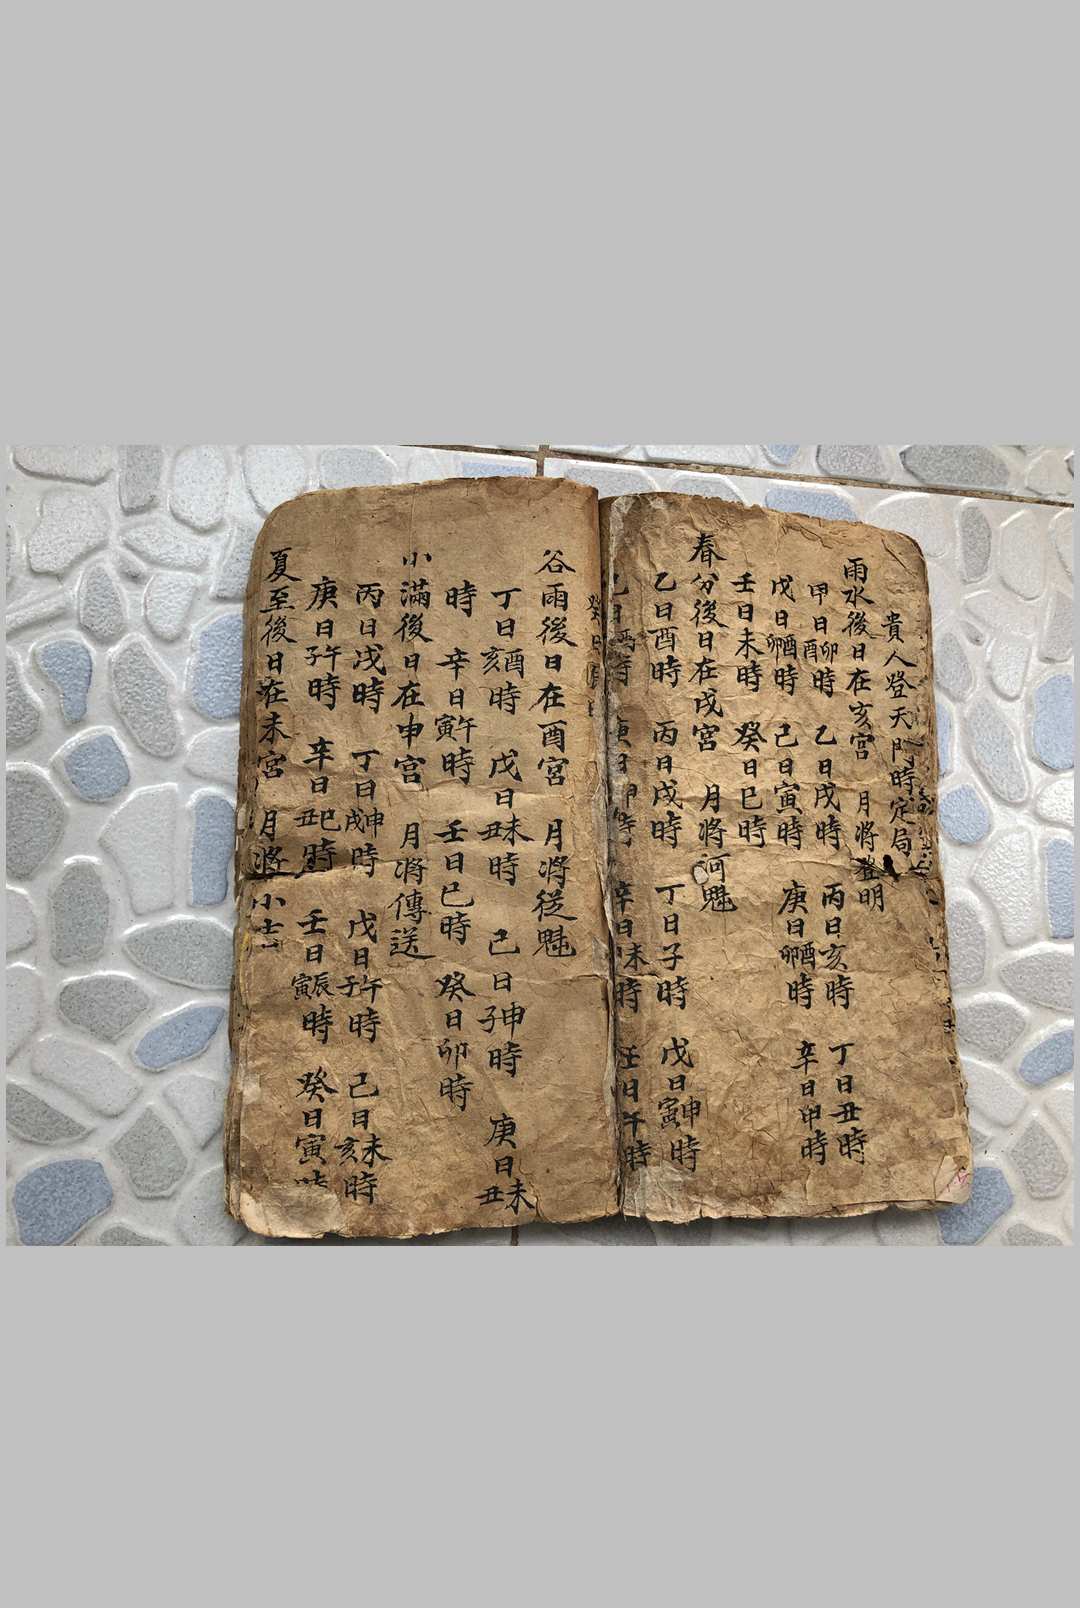 貴人登天門時定局
雨水後日在亥宮 月將登明
甲日卯酉時 乙日戌時 丙日亥時 丁日丑時
戊日卯酉時 己日寅時 庚日卯酉時 辛日申時
壬日未時 癸日巳時
春分後日在戌宮 月將河魁
乙日酉時 丙日戌時 丁日子時 戊日寅申時
己日時 庚日時 辛日未時 壬日午時
癸日
谷雨後日在酉宮 月將從魁
丁日亥酉時 戊日丑未時 己日子申時 庚日丑未
時 辛日寅午時 壬日巳時 癸日卯時
小滿後日在申宮 月將傳送
丙日戌時 丁日戌申時 戊日子午時 己日亥未時
庚日子午時 辛日丑巳時 壬日寅辰時 癸日寅時
夏至後日在未宮 月將小吉